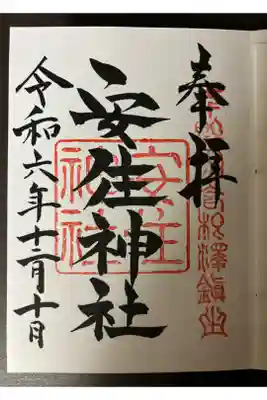 奉拝
安住神社
安住
神社
令和六年十二月十日